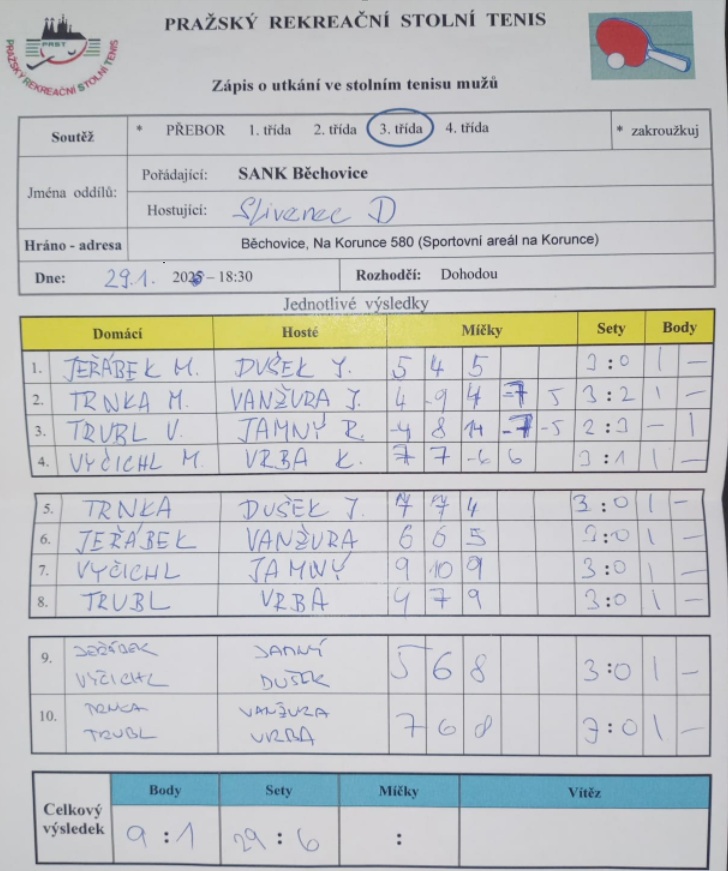 PRAŽSKÝ REKREAČNÍ STOLNÍ TENIS
PRST
PRAŽSKÝ REKREAČNÍ STOLNÍ TENIS
Zápis o utkání ve stolním tenisu mužů
Soutěž * PŘEBOR 1. třída 2. třída 3. třída 4. třída * zakroužkuj
Jména oddílů:
Pořádající: SANK Běchovice
Hostující: Slivenec D
Hráno - adresa Běchovice, Na Korunce 580 (Sportovní areál na Korunce)
Dne: 29.1. 2025 – 18:30 Rozhodčí: Dohodou
Jednotlivé výsledky
Domácí Hosté Míčky Sety Body
1. JEŘÁBEK M. DUŠEK J. 5 4 5 3:0 1 –
2. TRNKA M. VANŽURA J. 4 -9 4 -7 5 3:2 1 –
3. TRUBL V. JAMNÝ R. -4 8 14 -7 -5 2:3 – 1
4. VYČICHL M. VRBA K. 7 7 -6 6 3:1 1 –
5. TRNKA DUŠEK J. 7 7 4 3:0 1 –
6. JEŘÁBEK VANŽURA 6 6 5 3:0 1 –
7. VYČICHL JAMNÝ 9 10 9 3:0 1 –
8. TRUBL VRBA 4 7 9 3:0 1 –
9. JEŘÁBEK JAMNÝ 5 6 8 3:0 1 –
VYČICHL DUŠEK
10. TRNKA VANŽURA 7 6 8 3:0 1 –
TRUBL VRBA
Celkový výsledek
Body Sety Míčky Vítěz
9 : 1 29 : 6 :